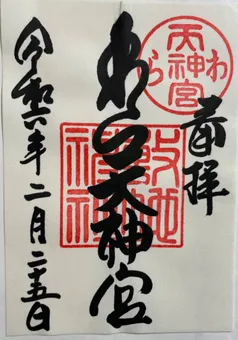 奉拝
わら
天神宮
わら天神宮
敷地
神社
令和六年二月二十五日